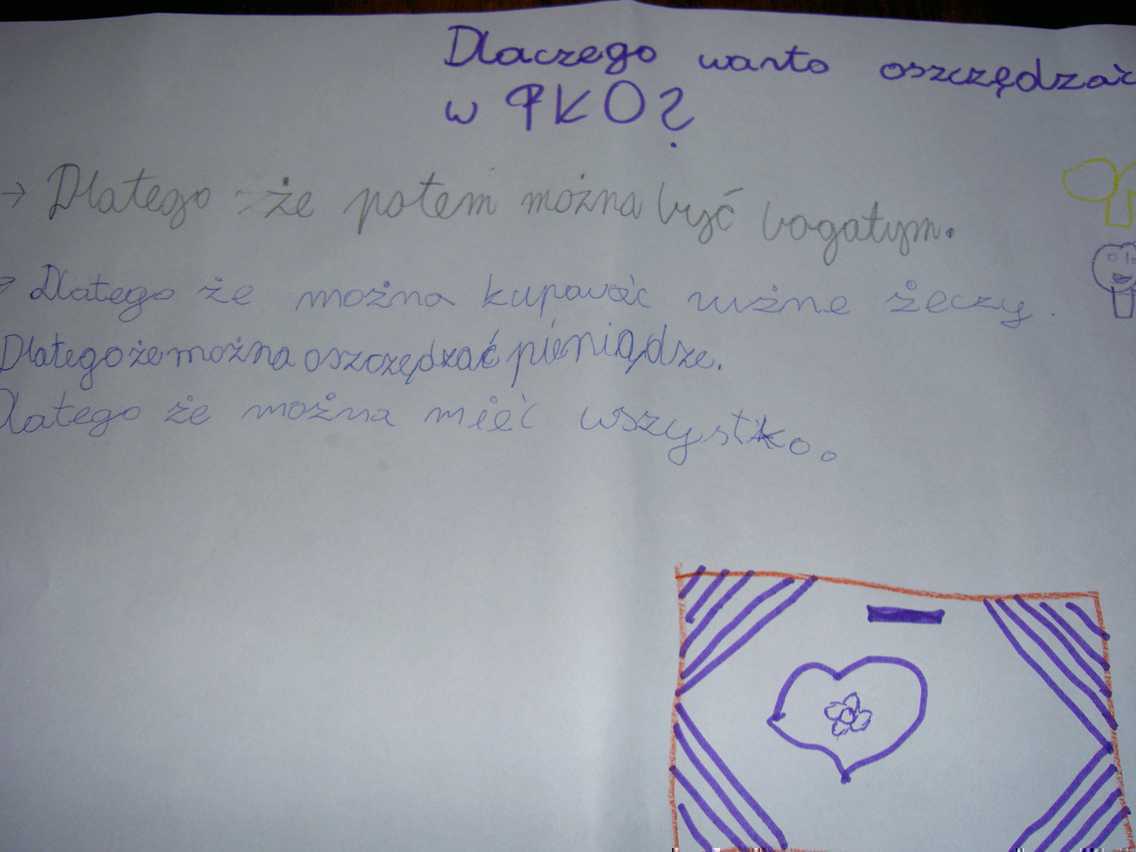 Dlaczego warto oszczędzać
w PKO?
→ Dlatego że potem można być bogatym.
→ Dlatego że można kupować rużne żeczy.
Dlatego że można oszczędzać pieniądze.
Dlatego że można mieć wszystko.